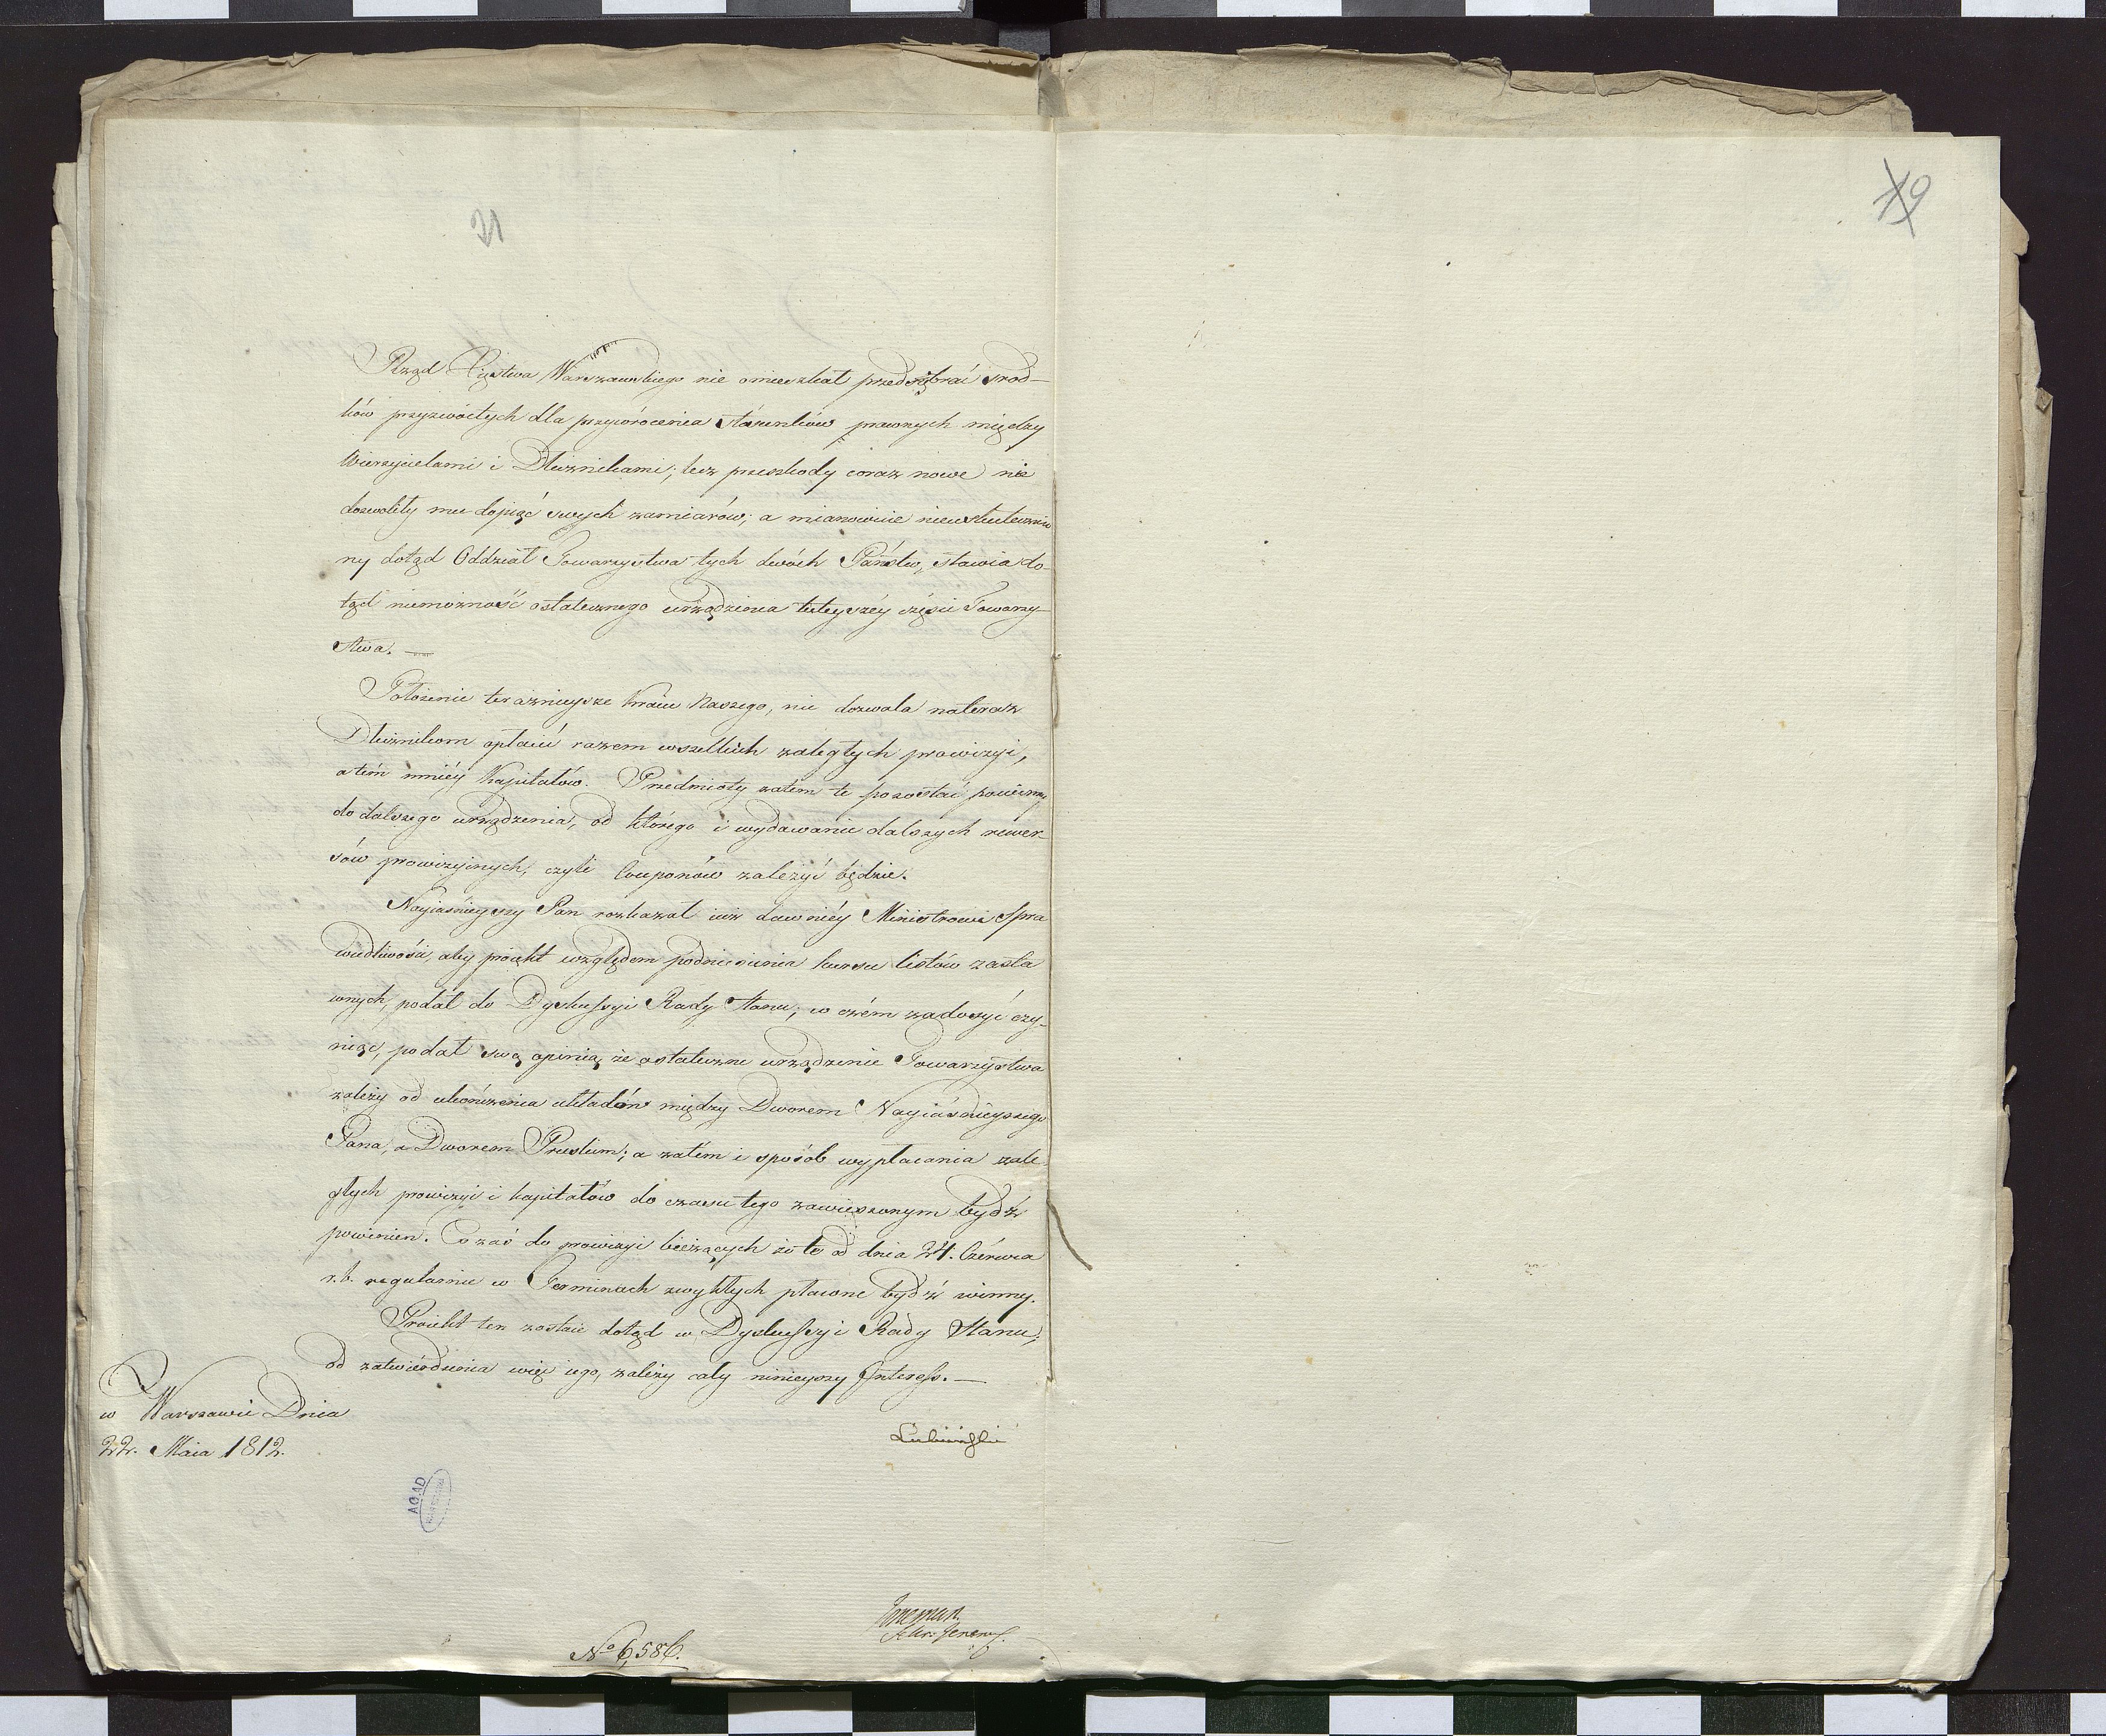 21
19
Rząd Xięstwa Warszawskiego nie omieszkał przedsiębrać srod-
ków przyzwoitych dla przywrócenia stósunków prawnych między
Wierzycielami i Dłużnikami; lecz przeszkody coraz nowe nie
dozwoliły mu dopiąć swych zamiarów; a mianowicie nieuskutecznio
ny dotąd Oddział Towarzystwa tych dwóch Państw, stawia do-
tąd niemożność ostatecznego urządzenia tuteyszéy części Towarzy-
stwa. —
Położenie teraźnieysze Kraiu Naszego, nie dozwala nateraz
Dłużnikom opłacić razem wszelkich zaległych prowizyi,
a tém mniéy Kapitałów. Przedmioty zatém te pozostać powinny
do dalszego urządzenia, od którego i wydawanie dalszych rewer-
sów prowizyinych, czyli Couponów zależyć będzie.
Nayiaśnieyszy Pan rozkazał iuż dawniéy Ministrowi Spra
wiedliwości, aby proiekt względem podniesienia kursu listów zasta
wnych, podał do Dyskussyi Rady Stanu; w czém zadosyć czy-
niąc, podał swą opinią, że ostateczne urządzenie Towarzystwa
zależy od ukończenia układów między Dworem Nayiaśnieyszego
Pana, a Dworem Pruskim; a zatém i sposób wypłacania zale-
głych prowizyi i kapitałów do czasu tego zawieszonym bydź
powinien. Co zaś do prowizyi bieżących że te od dnia 24. Czerwca
r. b. regularnie w Terminach zwykłych płacone bydź winny.
Proiekt ten zostaie dotąd w Dyskussyi Rady Stanu;
od zatwierdzenia więc iego, zależy cały ninieyszy Interess. —
w Warszawie Dnia
22. Maia 1812.
Lubieński
AGAD
Sekr: Jeneral.
No 6,586.